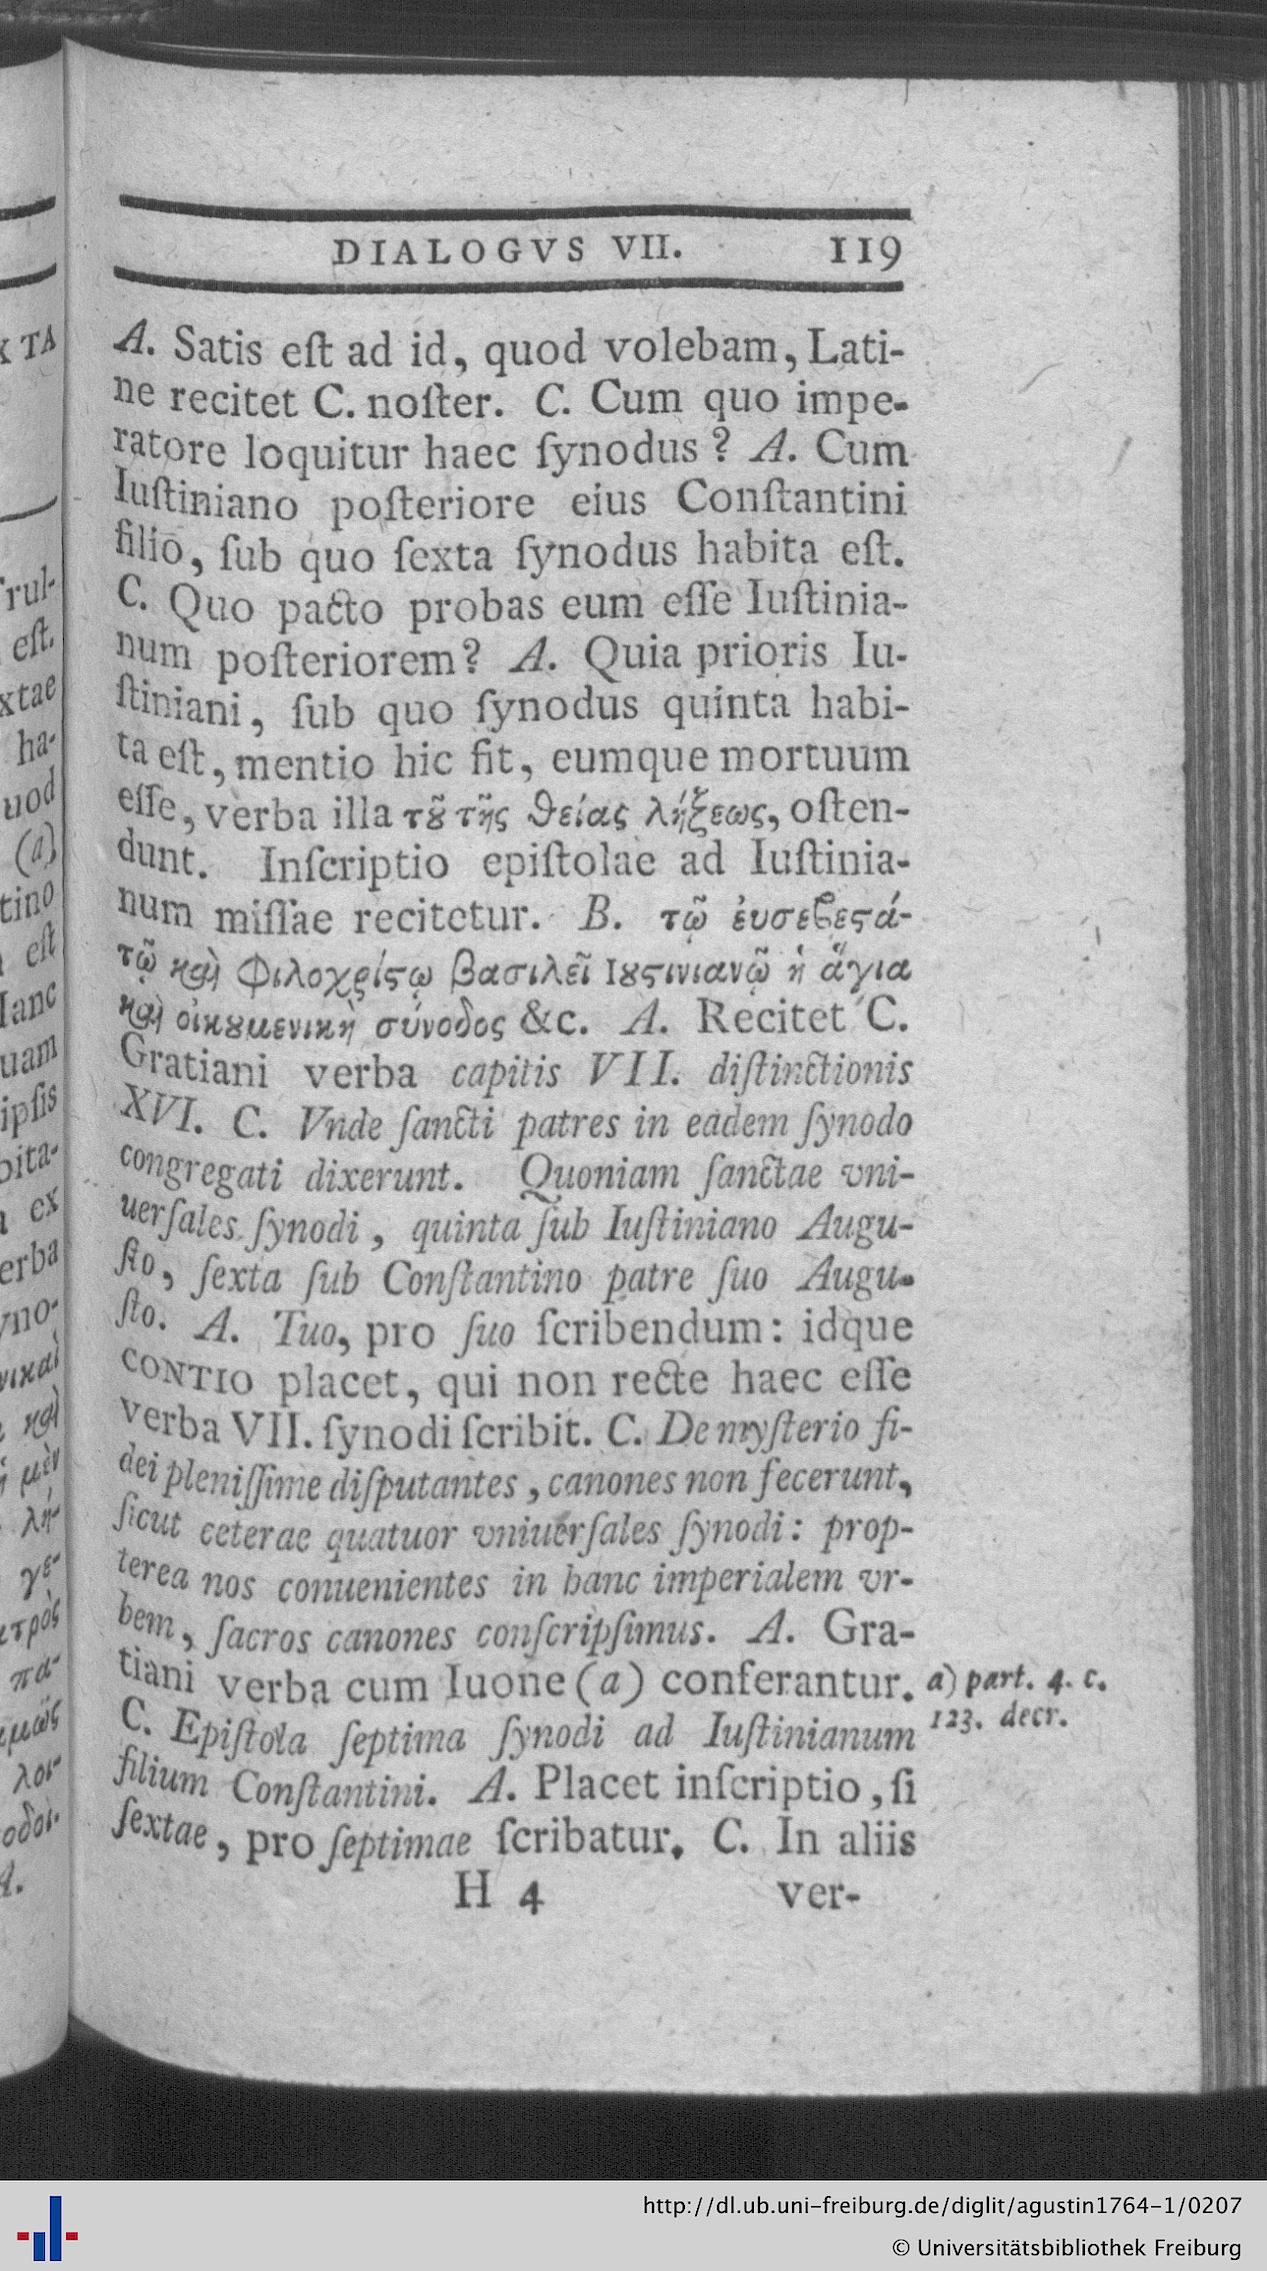 DIALOGVS VII. 119
A. Satis eſt ad id, quod volebam, Lati-
ne recitet C. noſter. C. Cum quo impe-
ratore loquitur haec ſynodus? A. Cum
Iuſtiniano poſteriore eius Conſtantini
filio, ſub quo ſexta ſynodus habita eſt.
C. Quo pacto probas eum eſſe Iuſtinia-
num poſteriorem? A. Quia prioris Iu-
ſtiniani, ſub quo ſynodus quinta habi-
ta eſt, mentio hic fit, eumque mortuum
eſſe, verba illa τȣ͂ τῆς θείας λήξεως, oſten-
dunt. Inſcriptio epiſtolae ad Iuſtinia-
num miſſae recitetur. B. τῷ ἐυσεβεϛά-
τῷ καὶ Φιλοχρίϛῳ βασιλεῖ Ιȣϛινιανῷ ἡ ἅγια
καὶ οἰκȣμενικὴ σύνοδος &c. A. Recitet C.
Gratiani verba capitis VII. diſtinctionis
XVI. C. Vnde ſancti patres in eadem ſynodo
congregati dixerunt. Quoniam ſanctae vni-
uerſales ſynodi, quinta ſub Iuſtiniano Augu-
ſto, ſexta ſub Conſtantino patre ſuo Augu-
ſto. A. Tuo, pro ſuo ſcribendum: idque
CONTIO placet, qui non recte haec eſſe
verba VII. ſynodi ſcribit. C. De myſterio fi-
dei pleniſſime diſputantes, canones non fecerunt,
ſicut ceterae quatuor vniuerſales ſynodi: prop-
terea nos conuenientes in hanc imperialem vr-
bem, ſacros canones conſcripſimus. A. Gra-
tiani verba cum Iuone (a) conferantur.
a) part. 4. c.
123. decr.
C. Epiſtola ſeptima ſynodi ad Iuſtinianum
filium Conſtantini. A. Placet inſcriptio, ſi
ſextae, pro ſeptimae ſcribatur. C. In aliis
H 4 ver-
http://dl.ub.uni-freiburg.de/diglit/agustin1764-1/0207
© Universitätsbibliothek Freiburg